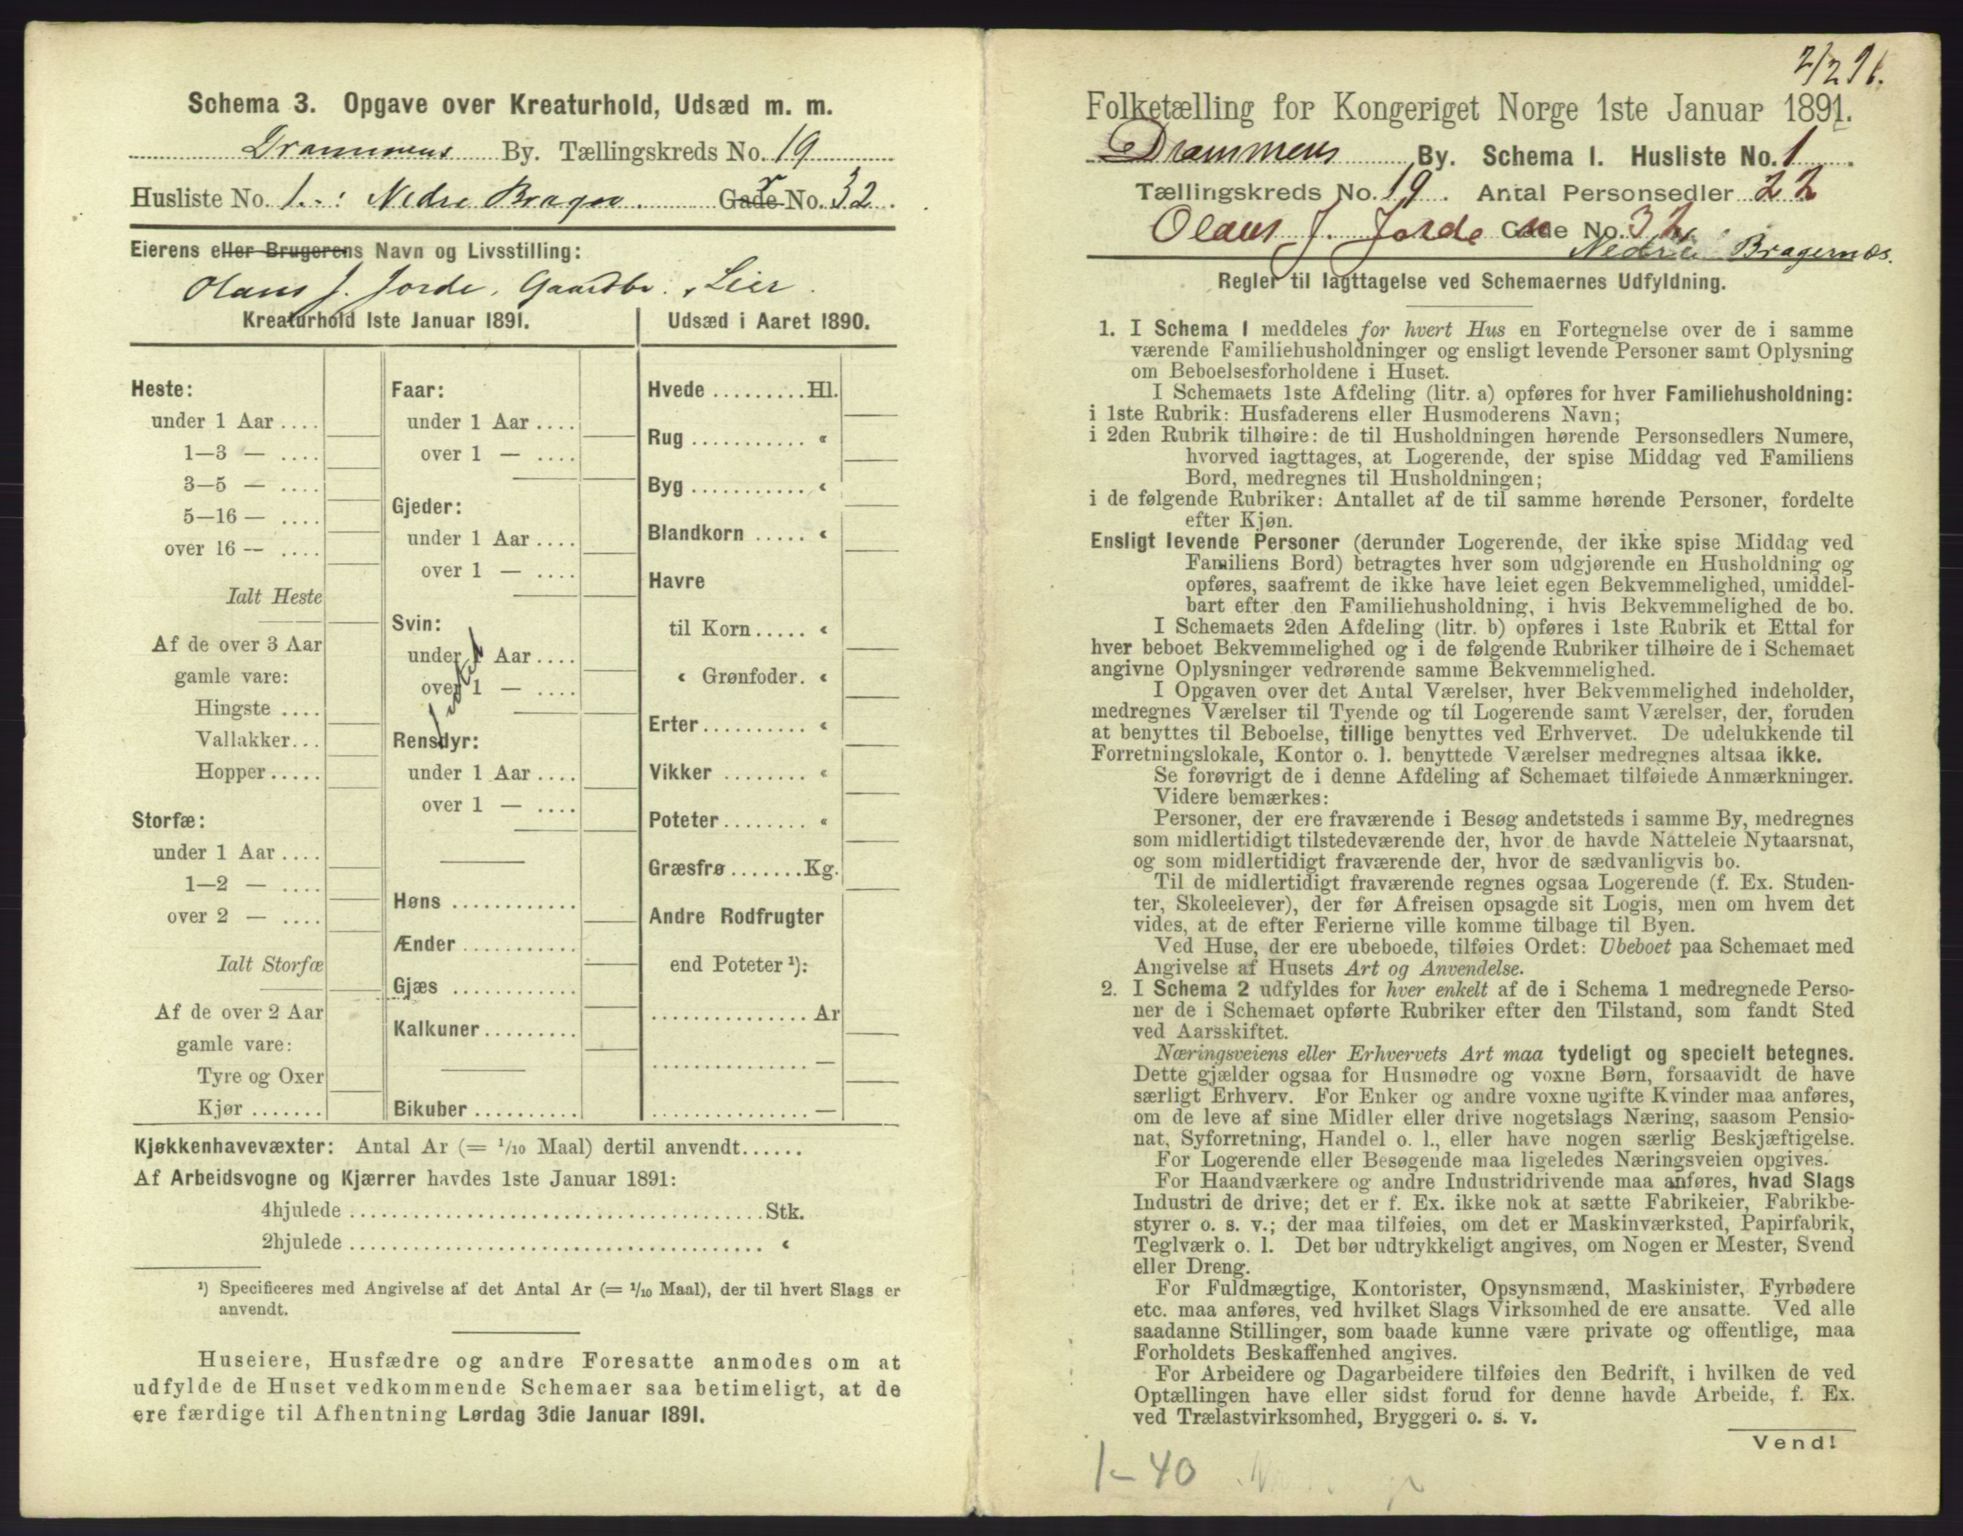 Schema 3. Opgave over Kreaturhold, Udsæd m. m.
Drammens By. Tællingskreds No. 19
Husliste No. 1. : Nedre Bragn. Gade No. 32.
Eierens eller Brugerens Navn og Livsstilling:
Olaus J. Jorde, Gaardbr., Lier.
Kreaturhold 1ste Januar 1891.
Heste:
under 1 Aar ....
1—3 — ....
3—5 — ....
5—16 — ....
over 16 — ....
Ialt Heste
Af de over 3 Aar
gamle vare:
Hingste ....
Vallakker...
Hopper.....
Storfæ:
under 1 Aar ....
1—2 — ....
over 2 — ....
Ialt Storfæ
Af de over 2 Aar
gamle vare:
Tyre og Oxer
Kjør .......
Faar:
under 1 Aar ....
over 1 — ....
Gjeder:
under 1 Aar ....
over 1 — ....
Svin:
under 1 Aar ....
over 1 — ....
Rensdyr:
under 1 Aar ....
over 1 — ....
Høns ............
Ænder ...........
Gjæs ............
Kalkuner.........
Bikuber ..........
Udsæd i Aaret 1890.
Hvede .........Hl.
Rug ........... «
Byg ........... «
Blandkorn ..... «
Havre
til Korn ..... «
« Grønfoder. «
Erter.......... «
Vikker ........ «
Poteter........ «
Græsfrø .......Kg.
Andre Rodfrugter
end Poteter ¹):
............... Ar
............... —
............... —
Kjøkkenhavevæxter: Antal Ar (= 1/10 Maal) dertil anvendt......
Af Arbeidsvogne og Kjærrer havdes 1ste Januar 1891:
4hjulede ........................................Stk.
2hjulede ........................................ «
¹) Specificeres med Angivelse af det Antal Ar (= 1/10 Maal), der til hvert Slags er
anvendt.
Huseiere, Husfædre og andre Foresatte anmodes om at
udfylde de Huset vedkommende Schemaer saa betimeligt, at de
ere færdige til Afhentning Lørdag 3die Januar 1891.
Folketælling for Kongeriget Norge 1ste Januar 1891.
Drammens By. Schema I. Husliste No. 1.
Tællingskreds No. 19. Antal Personsedler 22
Olaus J. Jorde Gade No. 32
Nedre Bragernæs.
Regler til Iagttagelse ved Schemaernes Udfyldning.
1. I Schema 1 meddeles for hvert Hus en Fortegnelse over de i samme
værende Familiehusholdninger og ensligt levende Personer samt Oplysning
om Beboelsesforholdene i Huset.
I Schemaets 1ste Afdeling (litr. a) opføres for hver Familiehusholdning:
i 1ste Rubrik: Husfaderens eller Husmoderens Navn;
i 2den Rubrik tilhøire: de til Husholdningen hørende Personsedlers Numere,
hvorved iagttages, at Logerende, der spise Middag ved Familiens
Bord, medregnes til Husholdningen;
i de følgende Rubriker: Antallet af de til samme hørende Personer, fordelte
efter Kjøn.
Ensligt levende Personer (derunder Logerende, der ikke spise Middag ved
Familiens Bord) betragtes hver som udgjørende en Husholdning og
opføres, saafremt de ikke have leiet egen Bekvemmelighed, umiddel-
bart efter den Familiehusholdning, i hvis Bekvemmelighed de bo.
I Schemaets 2den Afdeling (litr. b) opføres i 1ste Rubrik et Ettal for
hver beboet Bekvemmelighed og i de følgende Rubriker tilhøire de i Schemaet
angivne Oplysninger vedrørende samme Bekvemmelighed.
I Opgaven over det Antal Værelser, hver Bekvemmelighed indeholder,
medregnes Værelser til Tyende og til Logerende samt Værelser, der, foruden
at benyttes til Beboelse, tillige benyttes ved Erhvervet. De udelukkende til
Forretningslokale, Kontor o. l. benyttede Værelser medregnes altsaa ikke.
Se forøvrigt de i denne Afdeling af Schemaet tilføiede Anmærkninger.
Videre bemærkes:
Personer, der ere fraværende i Besøg andetsteds i samme By, medregnes
som midlertidigt tilstedeværende der, hvor de havde Natteleie Nytaarsnat,
og som midlertidigt fraværende der, hvor de sædvanligvis bo.
Til de midlertidigt fraværende regnes ogsaa Logerende (f. Ex. Studen-
ter, Skoleelever), der før Afreisen opsagde sit Logis, men om hvem det
vides, at de efter Ferierne ville komme tilbage til Byen.
Ved Huse, der ere ubeboede, tilføies Ordet: Ubeboet paa Schemaet med
Angivelse af Husets Art og Anvendelse.
2. I Schema 2 udfyldes for hver enkelt af de i Schema 1 medregnede Perso-
ner de i Schemaet opførte Rubriker efter den Tilstand, som fandt Sted
ved Aarsskiftet.
Næringsveiens eller Erhvervets Art maa tydeligt og specielt betegnes.
Dette gjælder ogsaa for Husmødre og voxne Børn, forsaavidt de have
særligt Erhverv. For Enker og andre voxne ugifte Kvinder maa anføres,
om de leve af sine Midler eller drive nogetslags Næring, saasom Pensio-
nat, Syforretning, Handel o. l., eller have nogen særlig Beskjæftigelse.
For Logerende eller Besøgende maa ligeledes Næringsveien opgives.
For Haandværkere og andre Industridrivende maa anføres, hvad Slags
Industri de drive; det er f. Ex. ikke nok at sætte Fabrikeier, Fabrikbe-
styrer o. s. v.; der maa tilføies, om det er Maskinværksted, Papirfabrik,
Teglværk o. l. Det bør udtrykkeligt angives, om Nogen er Mester, Svend
eller Dreng.
For Fuldmægtige, Kontorister, Opsynsmænd, Maskinister, Fyrbødere
etc. maa anføres, ved hvilket Slags Virksomhed de ere ansatte. Ved alle
saadanne Stillinger, som baade kunne være private og offentlige, maa
Forholdets Beskaffenhed angives.
For Arbeidere og Dagarbeidere tilføies den Bedrift, i hvilken de ved
Optællingen have eller sidst forud for denne havde Arbeide, f. Ex.
ved Trælastvirksomhed, Bryggeri o. s. v.
Vend!
1-40